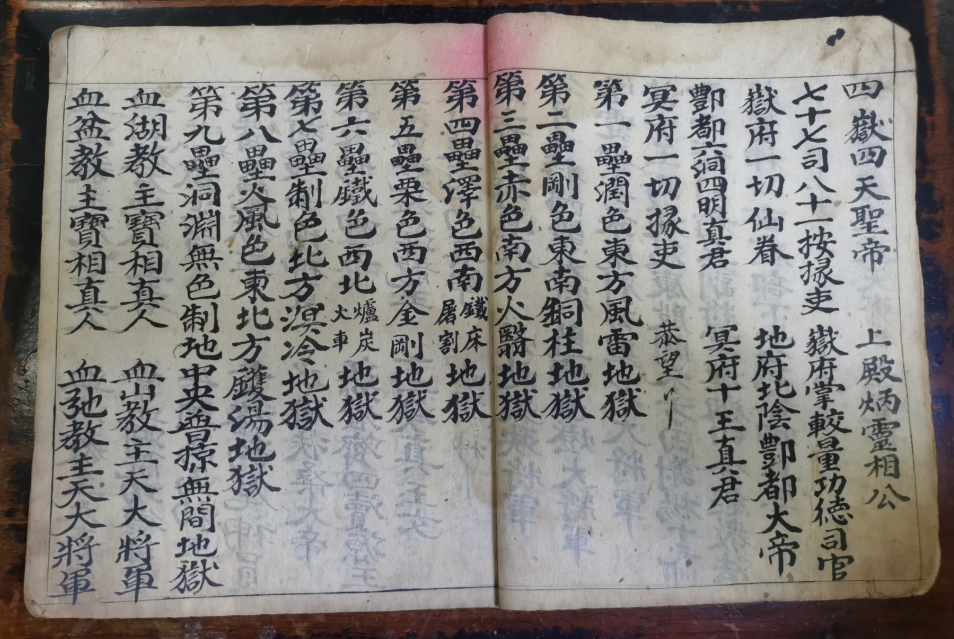 四嶽四天聖帝 上殿炳靈相公
七十七司八十一按掾吏 嶽府掌較量功德司官
嶽府一切仙眷 地府北陰酆都大帝
酆都六洞四明真君 冥府十王真君
冥府一切掾吏 恭望
第一壘潤色東方風雷地獄
第二壘剛色東南銅柱地獄
第三壘赤色南方火翳地獄
第四壘澤色西南鐵床屠割地獄
第五壘栗色西方金剛地獄
第六壘鐵色西北爐炭火車地獄
第七壘制色北方溟冷地獄
第八壘火風色東北方鑊湯地獄
第九壘洞淵無色制地中央普掠無間地獄
血湖教主寶相真人 血山教主天大將軍
血盆教主寶相真人 血池教主天大將軍